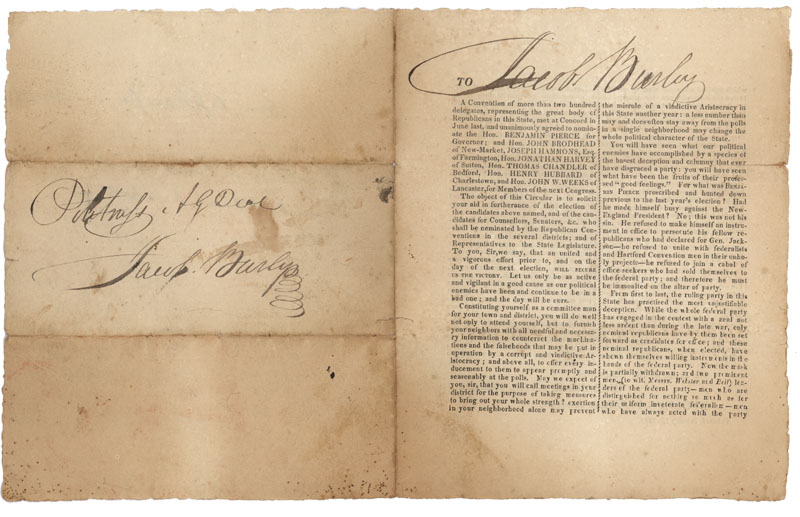 Jacob Burley
TO Jacob Burley
A Convention of more than two hundred
delegates, representing the great body of
Republicans in this State, met at Concord in
June last, and unanimously agreed to nomin-
ate the Hon. BENJAMIN PIERCE for
Governor; and Hon. JOHN BRODHEAD
of New-Market, JOSEPH HAMMONS, Esq.
of Farmington, Hon. JONATHAN HARVEY
of Sutton, Hon. THOMAS CHANDLER of
Bedford, Hon. HENRY HUBBARD of
Charlestown, and Hon. JOHN W. WEEKS of
Lancaster, for Members of the next Congress.
The object of this Circular is to solicit
your aid in furtherance of the election of
the candidates above named, and of the can-
didates for Counsellors, Senators, &c. who
shall be nominated by the Republican Con-
ventions in the several districts; and of
Representatives to the State Legislature.
To you, Sir, we say, that an united and
a vigorous effort prior to, and on the
day of the next election, WILL SECURE
US THE VICTORY. Let us only be as active
and vigilant in a good cause as our political
enemies have been and continue to be in a
bad one; and the day will be ours.
Constituting yourself as a committee man
for your town and district, you will do well
not only to attend yourself, but to furnish
your neighbors with all needful and necessa-
ry information to counteract the machina-
tions and the falsehoods that may be put in
operation by a corrupt and vindictive Ar-
istocracy; and above all, to offer every in-
ducement to them to appear promptly and
seasonably at the polls. May we expect of
you, sir, that you will call meetings in your
district for the purpose of taking measures
to bring out your whole strength? exertion
in your neighborhood alone may prevent
the misrule of a vindictive Aristocracy in
this State another year: a less number than
may and does often stay away from the polls
in a single neighborhood may change the
whole political character of the State.
You will have seen what our political
enemies have accomplished by a species of
the basest deception and calumny that ever
have disgraced a party: you will have seen
what have been the fruits of their profes-
sed "good feelings." For what was BENJA-
MIN PIERCE proscribed and hunted down
previous to the last year's election? Had
he made himself busy against the New-
England President? No; this was not his
sin. He refused to make himself an instru-
ment in office to persecute his fellow re-
publicans who had declared for Gen. Jack-
son—he refused to unite with federalists
and Hartford Convention men in their unho-
ly projects—he refused to join a cabal of
office seekers who had sold themselves to
the federal party; and therefore he must
be immolated on the altar of party.
From first to last, the ruling party in this
State has practised the most unjustifiable
deception. While the whole federal party
has engaged in the contest with a zeal not
less ardent than during the late war, only
nominal republicans have by them been set
forward as candidates for office; and these
nominal republicans, when elected, have
shown themselves willing instruments in the
hands of the federal party. Now the mask
is partially withdrawn; and two prominent
men, (to wit, Messrs. Webster and Bell) lea-
ders of the federal party—men who are
distinguished for nothing so much as for
their uniform inveterate federalism—men
who have always acted with the party